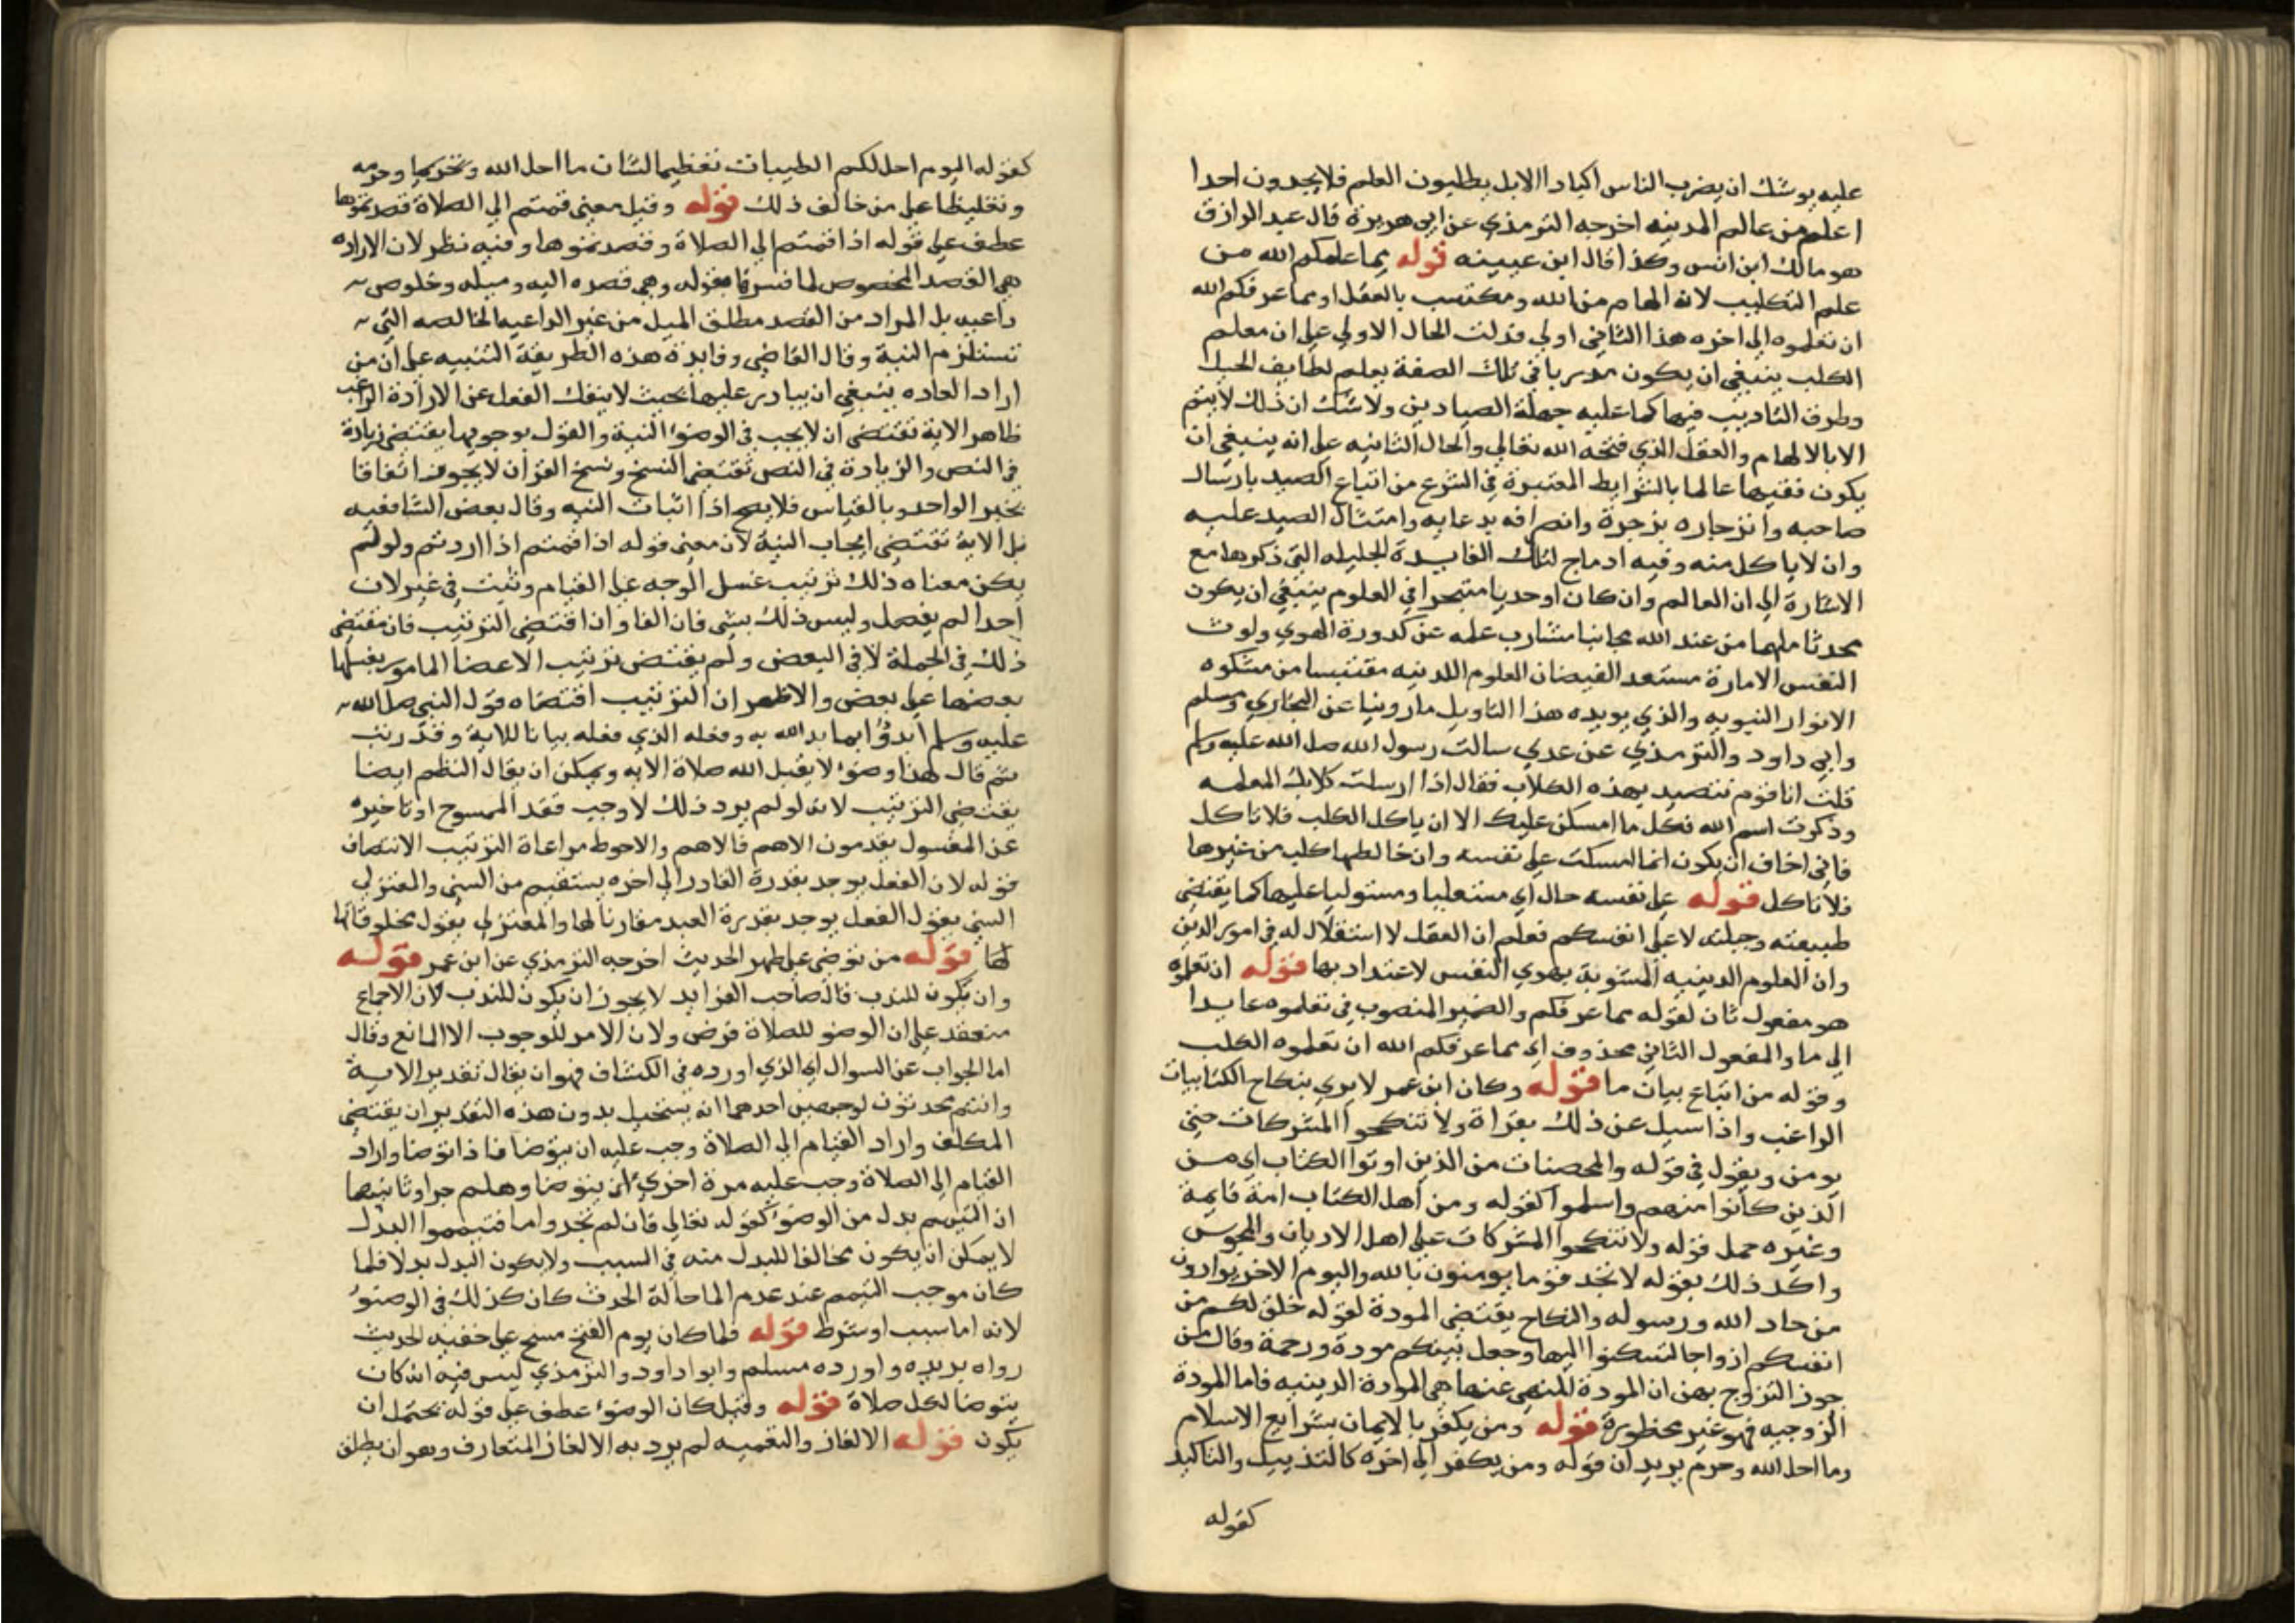 عليه يوشك ان يضرب الناس اكباد الابل يطلبون العلم فلا يجدون احدا
اعلم من عالم المدينه اخرجه الترمذي عن ابي هريرة قال عبد الرازق
هو مالك ابن انس وكذا قال ابن عيينه قوله مما علمكم الله من
علم التكليب لانه الهام من الله ومكتسب بالعقل او مما عرفكم الله
ان تعلموه الى اخره هذا الثاني اولي فدلت الحال الاولي على ان معلم
الكلب ينبغي ان يكون مدربا في تلك الصفة يعلم لطايف الحيل
وطرق التاديب فيها كما عليه جملة الصيادين ولا شك ان ذلك لا يتم
الا بالالهام والعقل الذي فتحه الله تعالي والحال الثانيه على انه ينبغي ان
يكون فقيها عالما بالشرايط المعتبرة في الشرع من اتباع الصيد بارسال
صاحبه وانزجاره بزجرة وانصرافه بدعايه وامتثال الصيد عليه
وان لا ياكل منه وفيه ادماج لتلك الفايدة الجليله التي ذكرها مع
الاشارة الى ان العالم وان كان اوحديا متبحرا في العلوم ينبغي ان يكون
محدثا ملهما من عند الله مجانبا مشارب علمه عن كدورة الهوي ولوث
النفس الامارة مستعد الفيضان العلوم اللدنيه مقتبسا من مشكوه
الانوار النبويه والذي يويده هذا التاويل ما روينا عن البخاري ومسلم
وابي داود والترمذي عن عدي سالت رسول الله صلى الله عليه وسلم
قلت انا قوم نتصيد بهذه الكلاب فقال اذا ارسلت كلابك المعلمه
وذكرت اسم الله فكل ما امسكن عليك الا ان ياكل الكلب فلا تاكل
فاني اخاف ان يكون انما امسكت على نفسه وان خالطها كلب من غيرها
فلا تاكل قوله على نفسه حال اي مستعليا ومستوليا عليها كما يقتضي
طبيعته وجبلته لا على انفسكم فعلم ان العقل لا استقلال له في امور الدين
وان العلوم الدينيه المشوبة بهوي النفس لا عنداد بها قوله ان تعلموه
هو مفعول ثان لقوله مما عرفكم والضمير المنصوب في تعلموه عايدا
الى ما والمفعول الثاني محذوف اي مما عرفكم الله ان تعلموه الكلب
وقوله من اتباع بيان ما قوله وكان ابن عمر لا يري بنكاح الكتابيات
الراغب واذا سيل عن ذلك يقراة ولا تنكحوا المشركات حتي
يومن ويقول في قوله والمحصنات من الذين اوتوا الكتاب اي من
الذين كانوا منهم واسلموا كقوله ومن اهل الكتاب امة قايمة
وغيره حمل قوله ولا تنكحوا المشركات على اهل الاديان والمجوس
واكد ذلك بقوله لا تجد قوما يومنون بالله واليوم الاخر يوادون
من حاد الله ورسوله والنكاح يقتضي المودة لقوله خلق لكم من
انفسكم ازواجا لتسكنوا اليها وجعل بينكم مودة ورحمة وقال من
جوز التزوج بهن ان المودة المنهي عنها هي المودة الدينيه فاما المودة
الزوجيه فهو غير محظورة قوله ومن يكفر بالايمان بشرايع الاسلام
وما احل الله وحرم يريد ان قوله ومن يكفر الى اخره كالتذييل والتاكيد
كقوله
كقوله اليوم احل لكم الطيبات تعظيما لشان ما احل الله وتحريما وحرمه
وتغليظا على من خالف ذلك قوله وقيل معنى قمتم الى الصلاة قصدتموها
عطف على قوله اذا قمتم الى الصلاة وقصدتموها وفيه نظر لان الاراده
هي القصد المخصوص لما فسرها بقوله وهي قصده اليه وميله وخلوص
داعيه بل المراد من القصد مطلق الميل من غير الداعيه الخالصه التي
تستلزم النية وقال القاضي وفايدة هذه الطريقة التنبيه على ان من
اراد العباده ينبغي ان يبادر عليها بحيث لا ينفك الفعل عن الارادة الراغب
ظاهر الاية تقتضي ان لا يجب في الوضوء النية والقول بوجوبها يقتضي زيادة
في النص والزيادة في النص تقتضي النسخ ونسخ القران لا يجوز اتفاقا
بخبر الواحد وبالقياس فلا يصح اذا اثبات النيه وقال بعض الشافعيه
بل الاية تقتضي ايجاب النية لان معنى قوله اذا قمتم اذا اردتم ولو لم
يكن معناه ذلك ترتيب غسل الوجه على القيام وتثبت في غير لان
احدا لم يفصل وليس ذلك بشي فان الفا وان اقتضي الترتيب فان مقتضي
ذلك في الجملة لا في البعض ولم يقتض ترتيب الاعضا المامور بغسلها
بعضها على بعض والاظهر ان الترتيب اقتضاه قول النبي صلى الله
عليه وسلم ابدؤا بما بدا الله به وفعله الذي فعله بيانا للاية وقد رتب
ثم قال هذا وضوء لا يقبل الله صلاة الا به ويمكن ان يقال النظم ايضا
يقتضي الترتيب لانه لو لم يرد ذلك لاوجب فقد الممسوح او تاخيره
عن المغسول يقدمون الاهم فالاهم والاحوط مراعاة الترتيب الانتصاف
قوله لان الفعل يوجد بقدرة القادر الى اخره يستقيم من السني والمعتزلي
السني يقول الفعل يوجد بقدرة العبد مقارنا لها والمعتزلي يقول مخلوقاتها
لها قوله من توضي على طهر الحديث اخرجه الترمذي عن ابن عمر قوله
وان يكون للندب قال صاحب الفرايد لا يجوز ان يكون للندب لان الاجماع
منعقد على ان الوضو للصلاة فرض ولان الامر للوجوب الا المانع وقال
اما الجواب عن السوال اي الذي اورده في الكشاف فهو ان يقال تقدير الاية
وانتم محدثون لوجهين احدهما انه يستحيل بدون هذه التقدير ان يقتضي
المكلف واراد القيام الى الصلاة وجب عليه ان يتوضا فاذا توضا واراد
القيام الى الصلاة وجب عليه مرة اخري ان يتوضا وهلم جرا وثانيها
ان التيمم بدل من الوضوء كقوله تعالي فان لم تجدوا ما فتيمموا البدل
لا يمكن ان يكون مخالفا للبدل منه في السبب ولا يكون البدل بدلا فلما
كان موجب التيمم عند عدم الما حالة الحدث كان كذلك في الوضوء
لانه اما سبب او شرط قوله فلما كان يوم الفتح مسح على خفيه الحديث
رواه بريده واورده مسلم وابوا داود والترمذي ليس فيه انه كان
يتوضا لكل صلاة قوله وقيل كان الوضوء عطف على قوله يحتمل ان
يكون قوله الالغاز والتعميه لم يرد به الالغاز المتعارف وهو ان يطلق